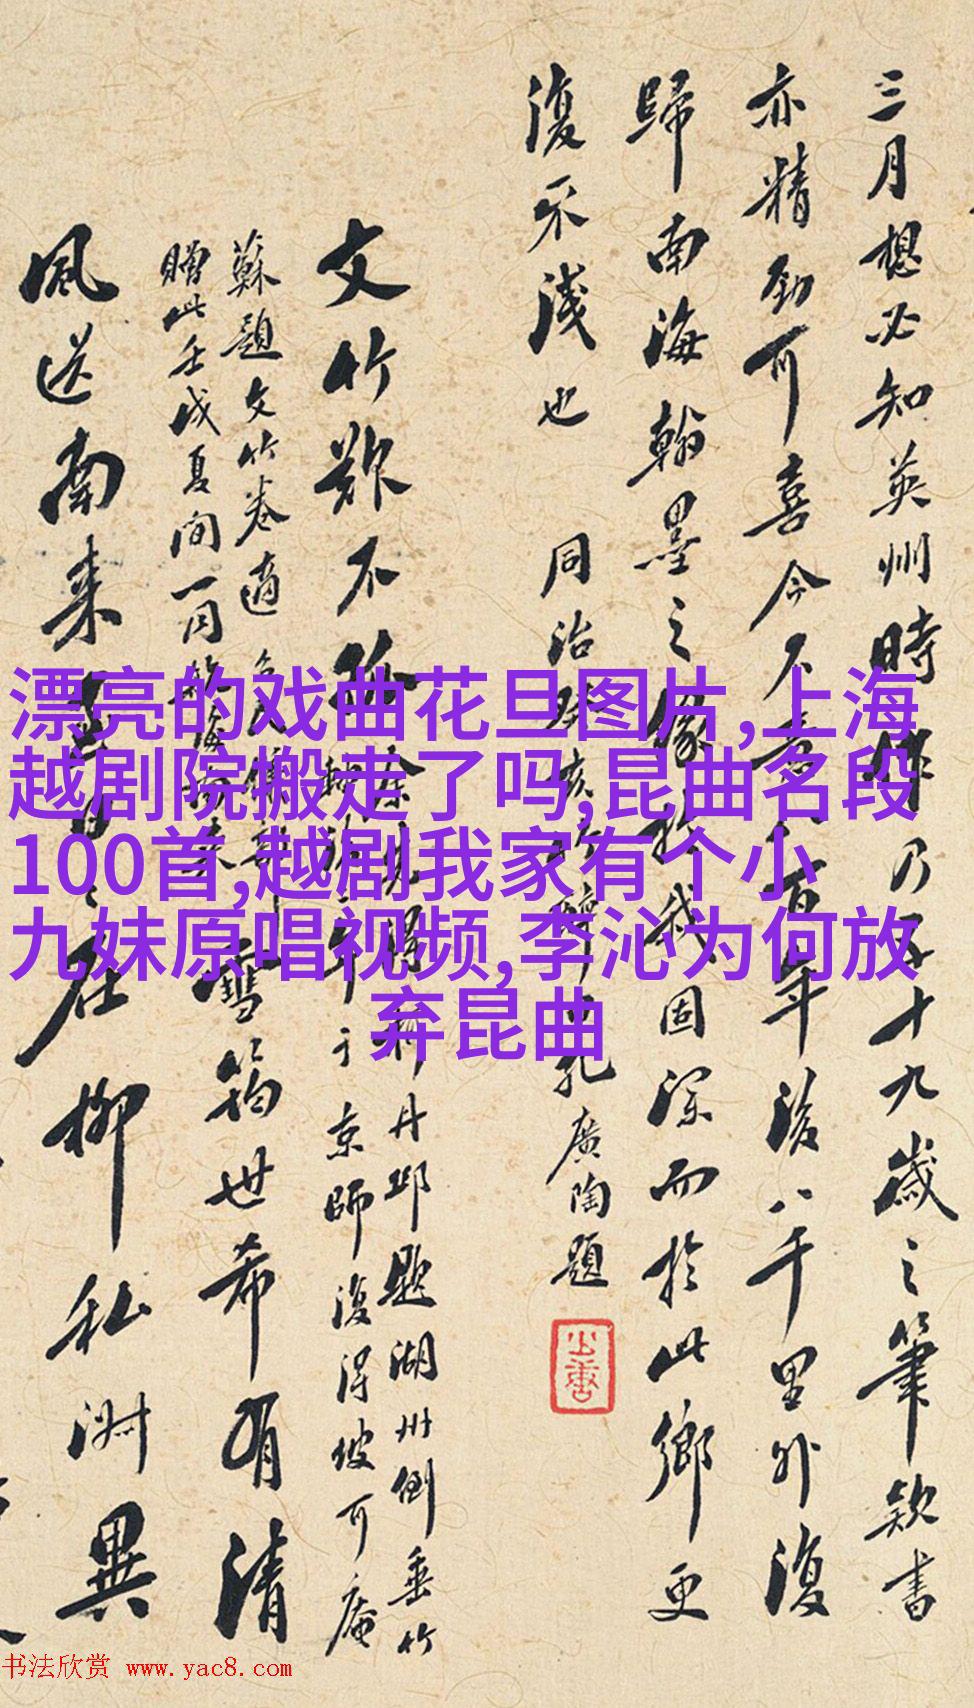 漂亮的戏曲花旦图片,上海
越剧院搬走了吗,昆曲名段
100首,越剧我家有个小
九妹原唱视频,李沁为何放
弃昆曲
三月想必知英州時作乃五十九歲之筆款書
亦精勁可喜今不意百年後八千里外復
歸南海翰墨之緣於我固深而於此鄉更
復不淺也 同治亥孔廣陶題
文竹不
得柯丹邱題湖州倒垂竹
年于京師復得坡可庵
雪筠世希有清
蘇題文竹卷適
贈此壬戌夏間一同
風送南来在柳私淵異
书法欣赏 www.yac8.com